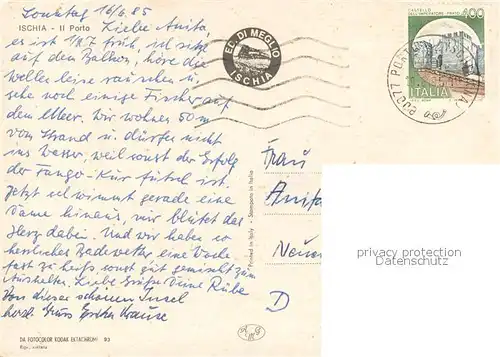 Sonntag 16/6.85
ISCHIA - Il Porto
Liebe Anita,
es ist 1/2 7 früh, ich sitze
auf dem Balkon, höre die
Wellen leise rauschen u.
sehe noch einige Fischer auf
dem Meer. Wir wohnen 50 m
vom Strand u. dürfen nicht
ins Wasser, weil sonst der Erfolg
der Fango-Kur futsch ist.
Jetzt schwimmt gerade eine
Dame hinaus, mir blutet das
Herz dabei. Und wir haben so
herrliches Badewetter, eine Woche
fast zu heiß, sonst gut gemischt zum
Aushalten. Liebe Grüße Deine
Von dieser schönen Insel
herzl. Gruß Krause
ED. DI MEGLIO
ISCHIA
CASTELLO
DELL'IMPERATORE - PRATO
400
ITALIA
80077 PORTO
Frau
Anita
D
Printed in Italy - Stampato in Italia
privacy protection
Datenschutz
DA FOTOCOLOR KODAK EKTACHROME 93